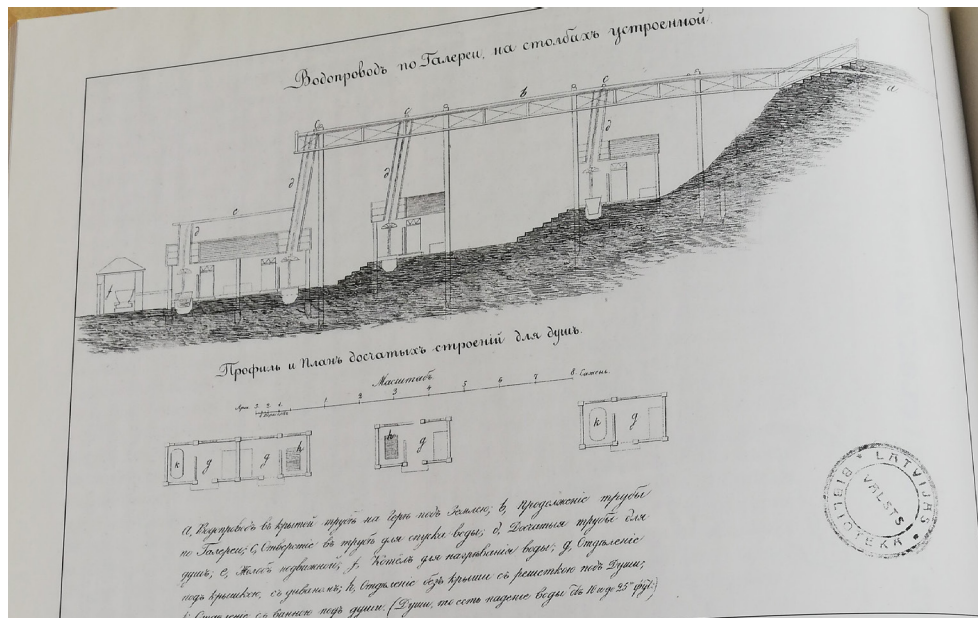 Водопроводъ по Галереи, на столбахъ устроенной.
a
b
c
c
c
c
d
d
d
d
f
Профиль и Планъ досчатыхъ строеній для душъ.
Масштабъ
1 2 3 4 5 6 7 8 Сажень
k g g h
h g
k g
a, Водопроводъ въ крытой трубѣ на Горѣ подъ Землею; b, Продолженіе трубы
по Галереи; c, Отверстіе въ трубѣ для спуска воды; d, Досчатыя трубы для
душъ; e, Жолобъ подвижной; f, Котелъ для нагрѣванія воды; g, Отдѣленіе
подъ крышкою, съ диваномъ; h, Отдѣленіе безъ крыши съ решеткою подъ Души;
k, Отдѣленіе съ ванною подъ души. (Души, то есть паденіе воды отъ 10 и до 25 фут.)
LATVIJAS
VALSTS
BIBLIOTEKA